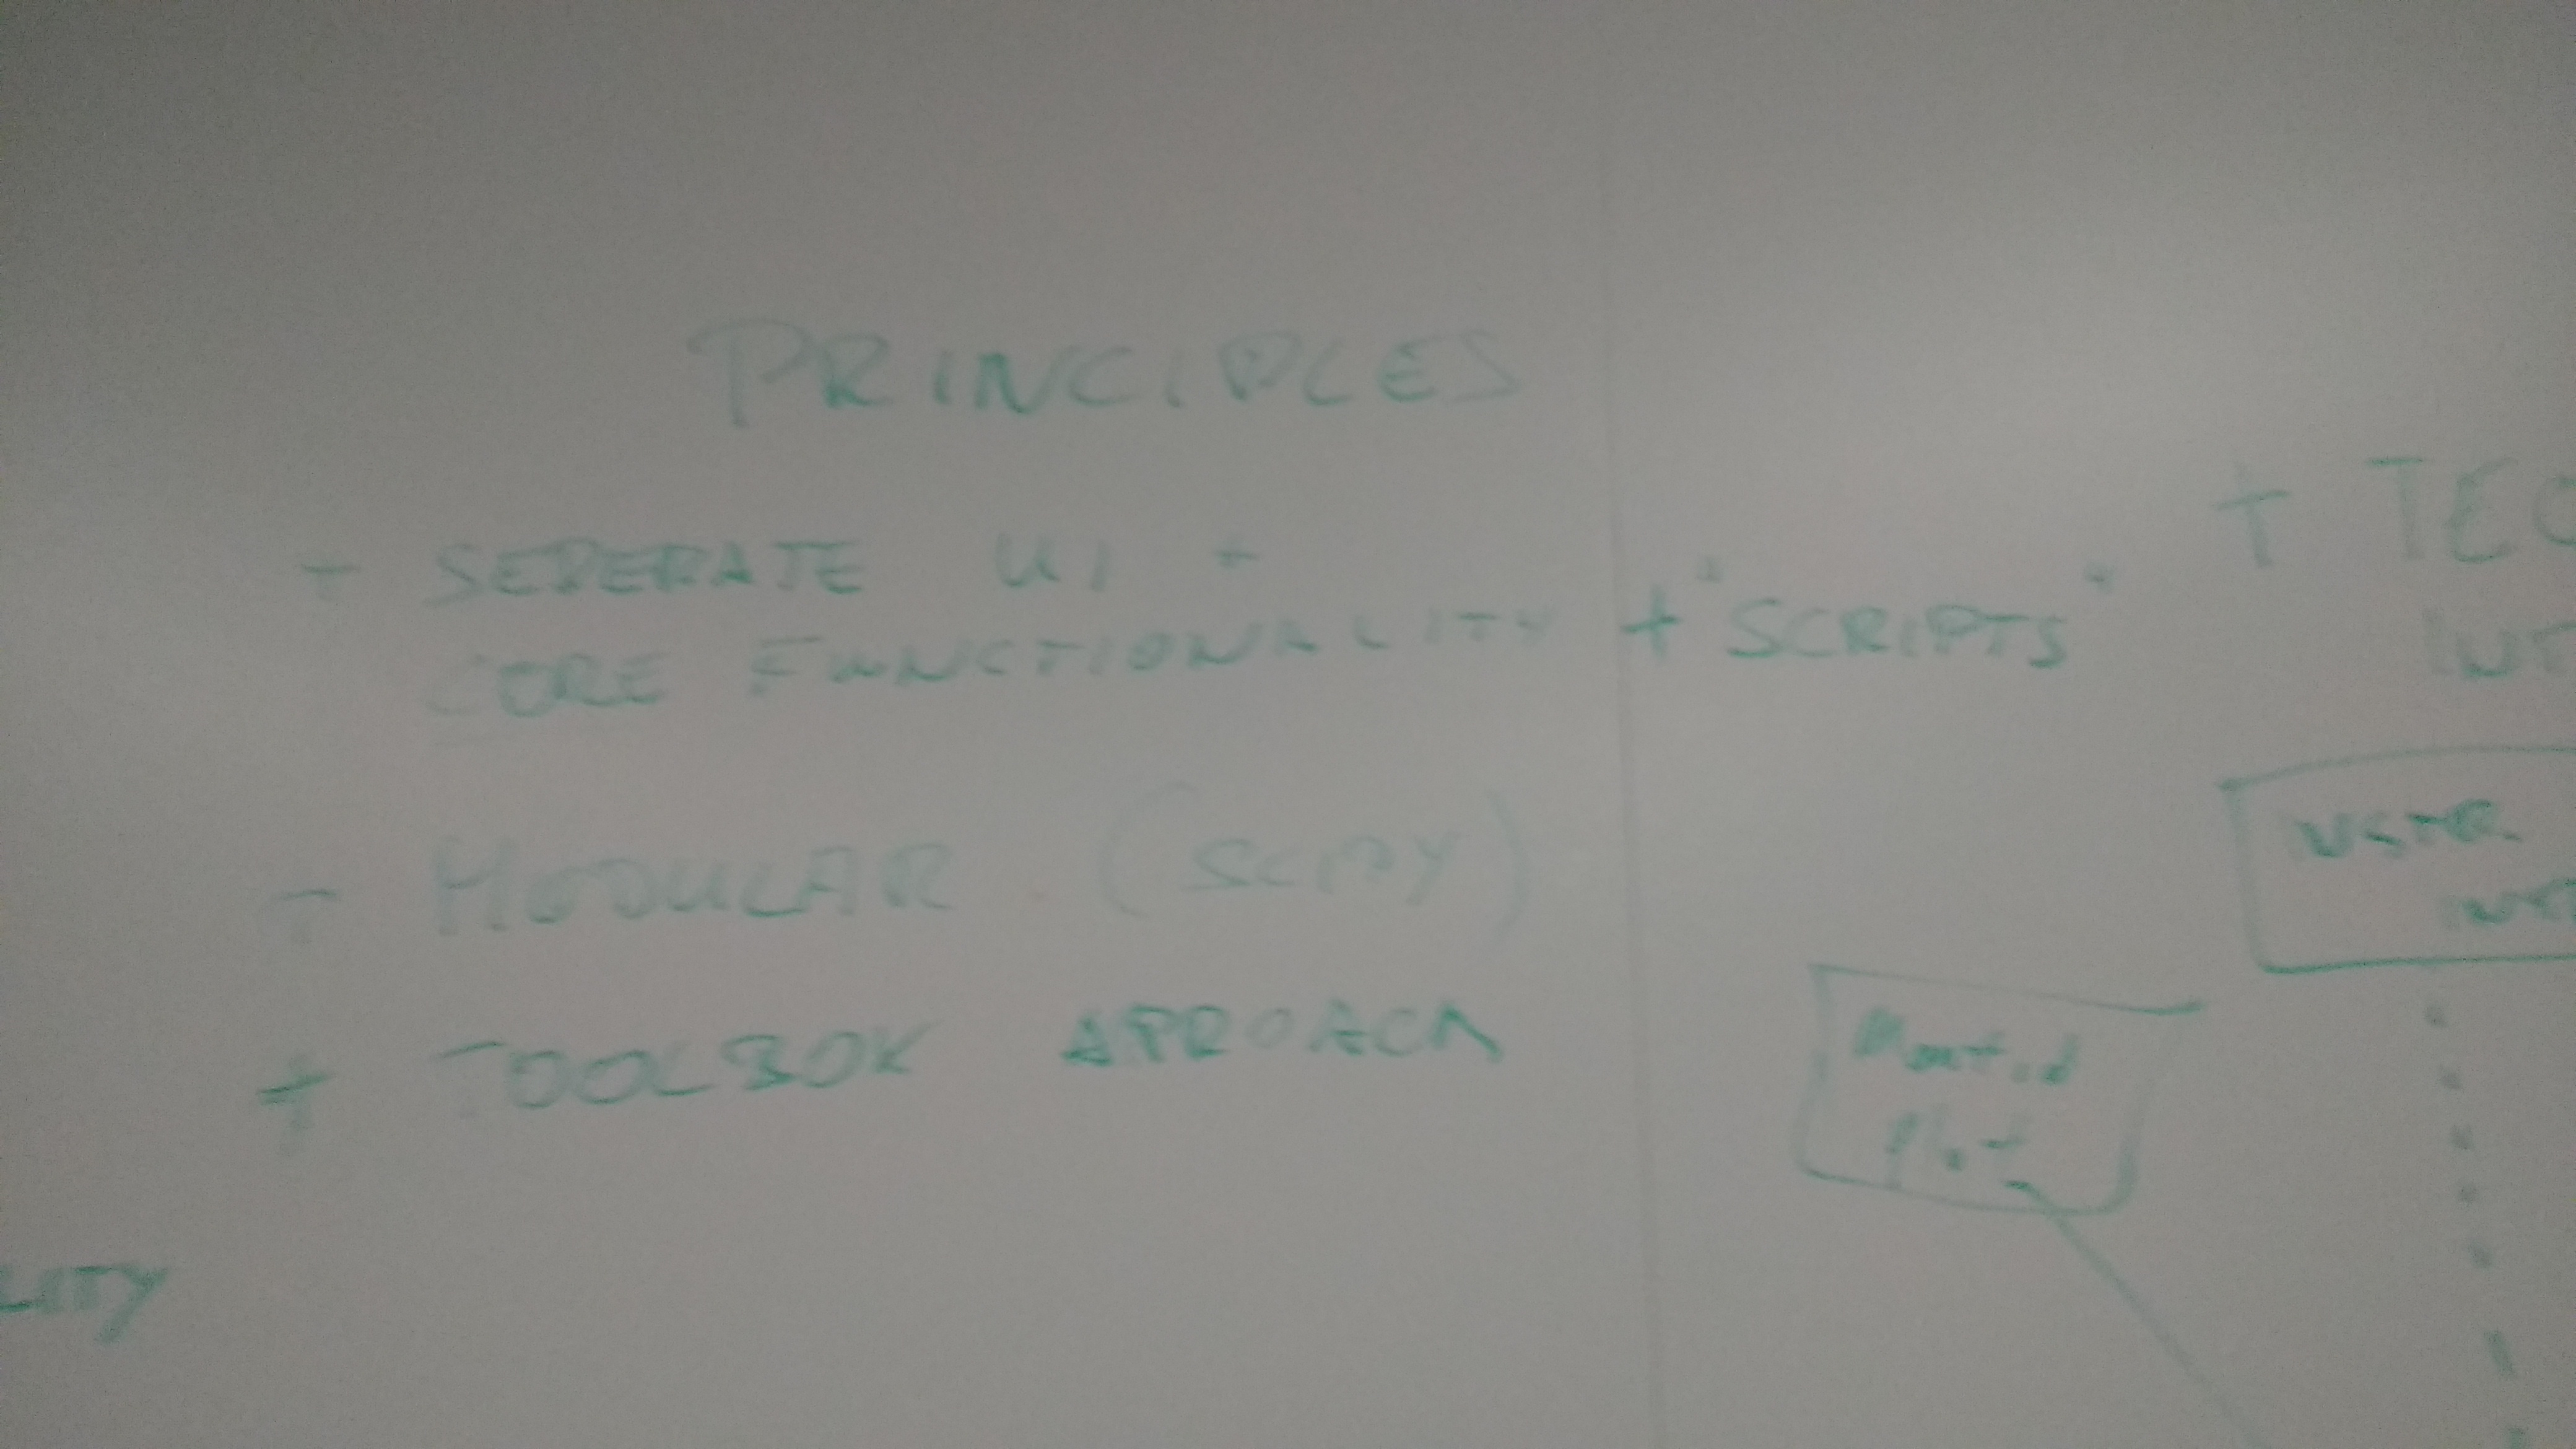 PRINCIPLES
+ SEPERATE UI +
CORE FUNCTIONALITY + "SCRIPTS"
+ MODULAR (SCIPY)
+ TOOLBOX APROACH
LITY
+ TEC
INT
USER
INT
Mantid
Plot